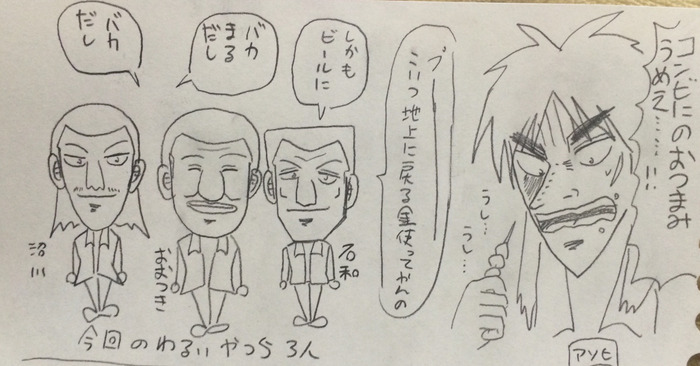 コンビにのおつまみ
うめえ……!!
うし…
うし…
アソヒ
プ
こいつ地上に戻る金使ってやんの
しかも
ビールに
バカ
まる
だし
バカ
だし
石和
おまつき
沼川
今回のわるいやつら3人